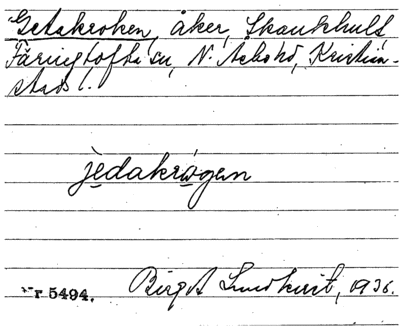 Getakroken, åker, Skånkhult
Färingtofta sn, N. Åsbo hd, Kristian-
stads l.
jedakrogen
Nr 5494. Birgit Lundkvist, 1936.